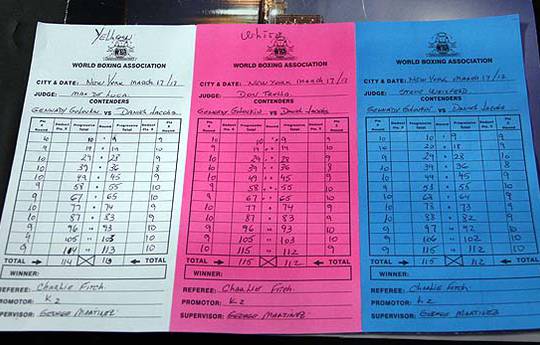 Yellow
WORLD BOXING ASSOCIATION
CITY & DATE: New York March 17/17
JUDGE: Max De Luca
CONTENDERS
Gennady Golovkin VS Daniel Jacobs
Pts Round Deduct Pts. F Progressive Total Round Progressive Total Deduct Pts. F Pts Round
10 9 9
9 19 19 10
10 29 28 9
10 39 36 8
10 49 45 9
9 58 55 10
9 67 65 10
10 77 74 9
10 87 83 9
9 96 93 10
9 105 103 10
9 114 113 10
TOTAL 114 113 TOTAL
WINNER:
REFEREE: Charlie Fitch
PROMOTOR: K2
SUPERVISOR: George Martinez
White
WORLD BOXING ASSOCIATION
CITY & DATE: New York March 17/17
JUDGE: Don Trella
CONTENDERS
Gennady Golovkin VS Daniel Jacobs
Pts Round Deduct Pts. F Progressive Total Round Progressive Total Deduct Pts. F Pts Round
10 9 9
9 19 19 10
10 29 28 9
10 39 36 8
10 49 45 9
9 58 55 10
9 67 65 10
10 77 74 9
10 87 83 9
9 96 93 10
9 105 103 10
10 115 112 9
TOTAL 115 112 TOTAL
WINNER:
REFEREE: Charlie Fitch
PROMOTOR: K2
SUPERVISOR: George Martinez
WORLD BOXING ASSOCIATION
CITY & DATE: New York March 17/17
JUDGE: Steve Weisfeld
CONTENDERS
Gennady Golovkin VS Daniel Jacobs
Pts Round Deduct Pts. F Progressive Total Round Progressive Total Deduct Pts. F Pts Round
10 10 9 9
10 20 18 9
9 29 28 10
10 39 36 8
10 49 45 9
55 10
64
10 78 73 9
10 88 82 9
9 97 92 10
9 102 10
9 115 112 10
TOTAL 115 112 TOTAL
WINNER:
REFEREE: Charlie Fitch
PROMOTOR: K2
SUPERVISOR: George Martinez